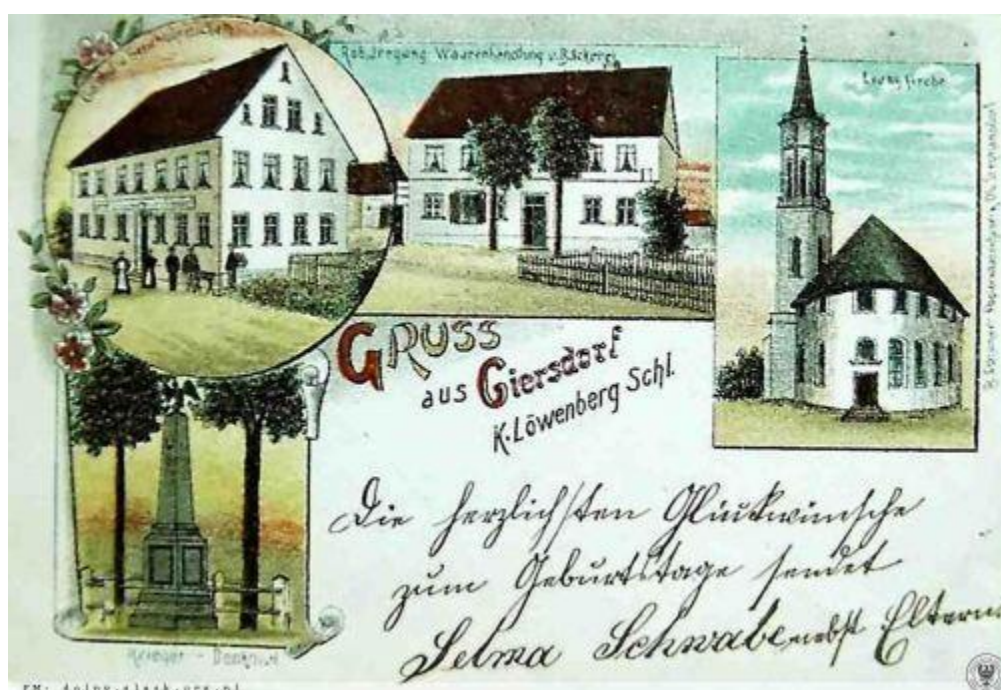 Rob. Irrgang Waarenhandlung u. Bäckerei
Evang. Kirche
GRUSS
aus Giersdorf
K. Löwenberg Schl.
Krieger - Denkmal
Die herzlichsten Glückwünsche
zum Geburtstage sendet
Selma Schwabe nebst Eltern